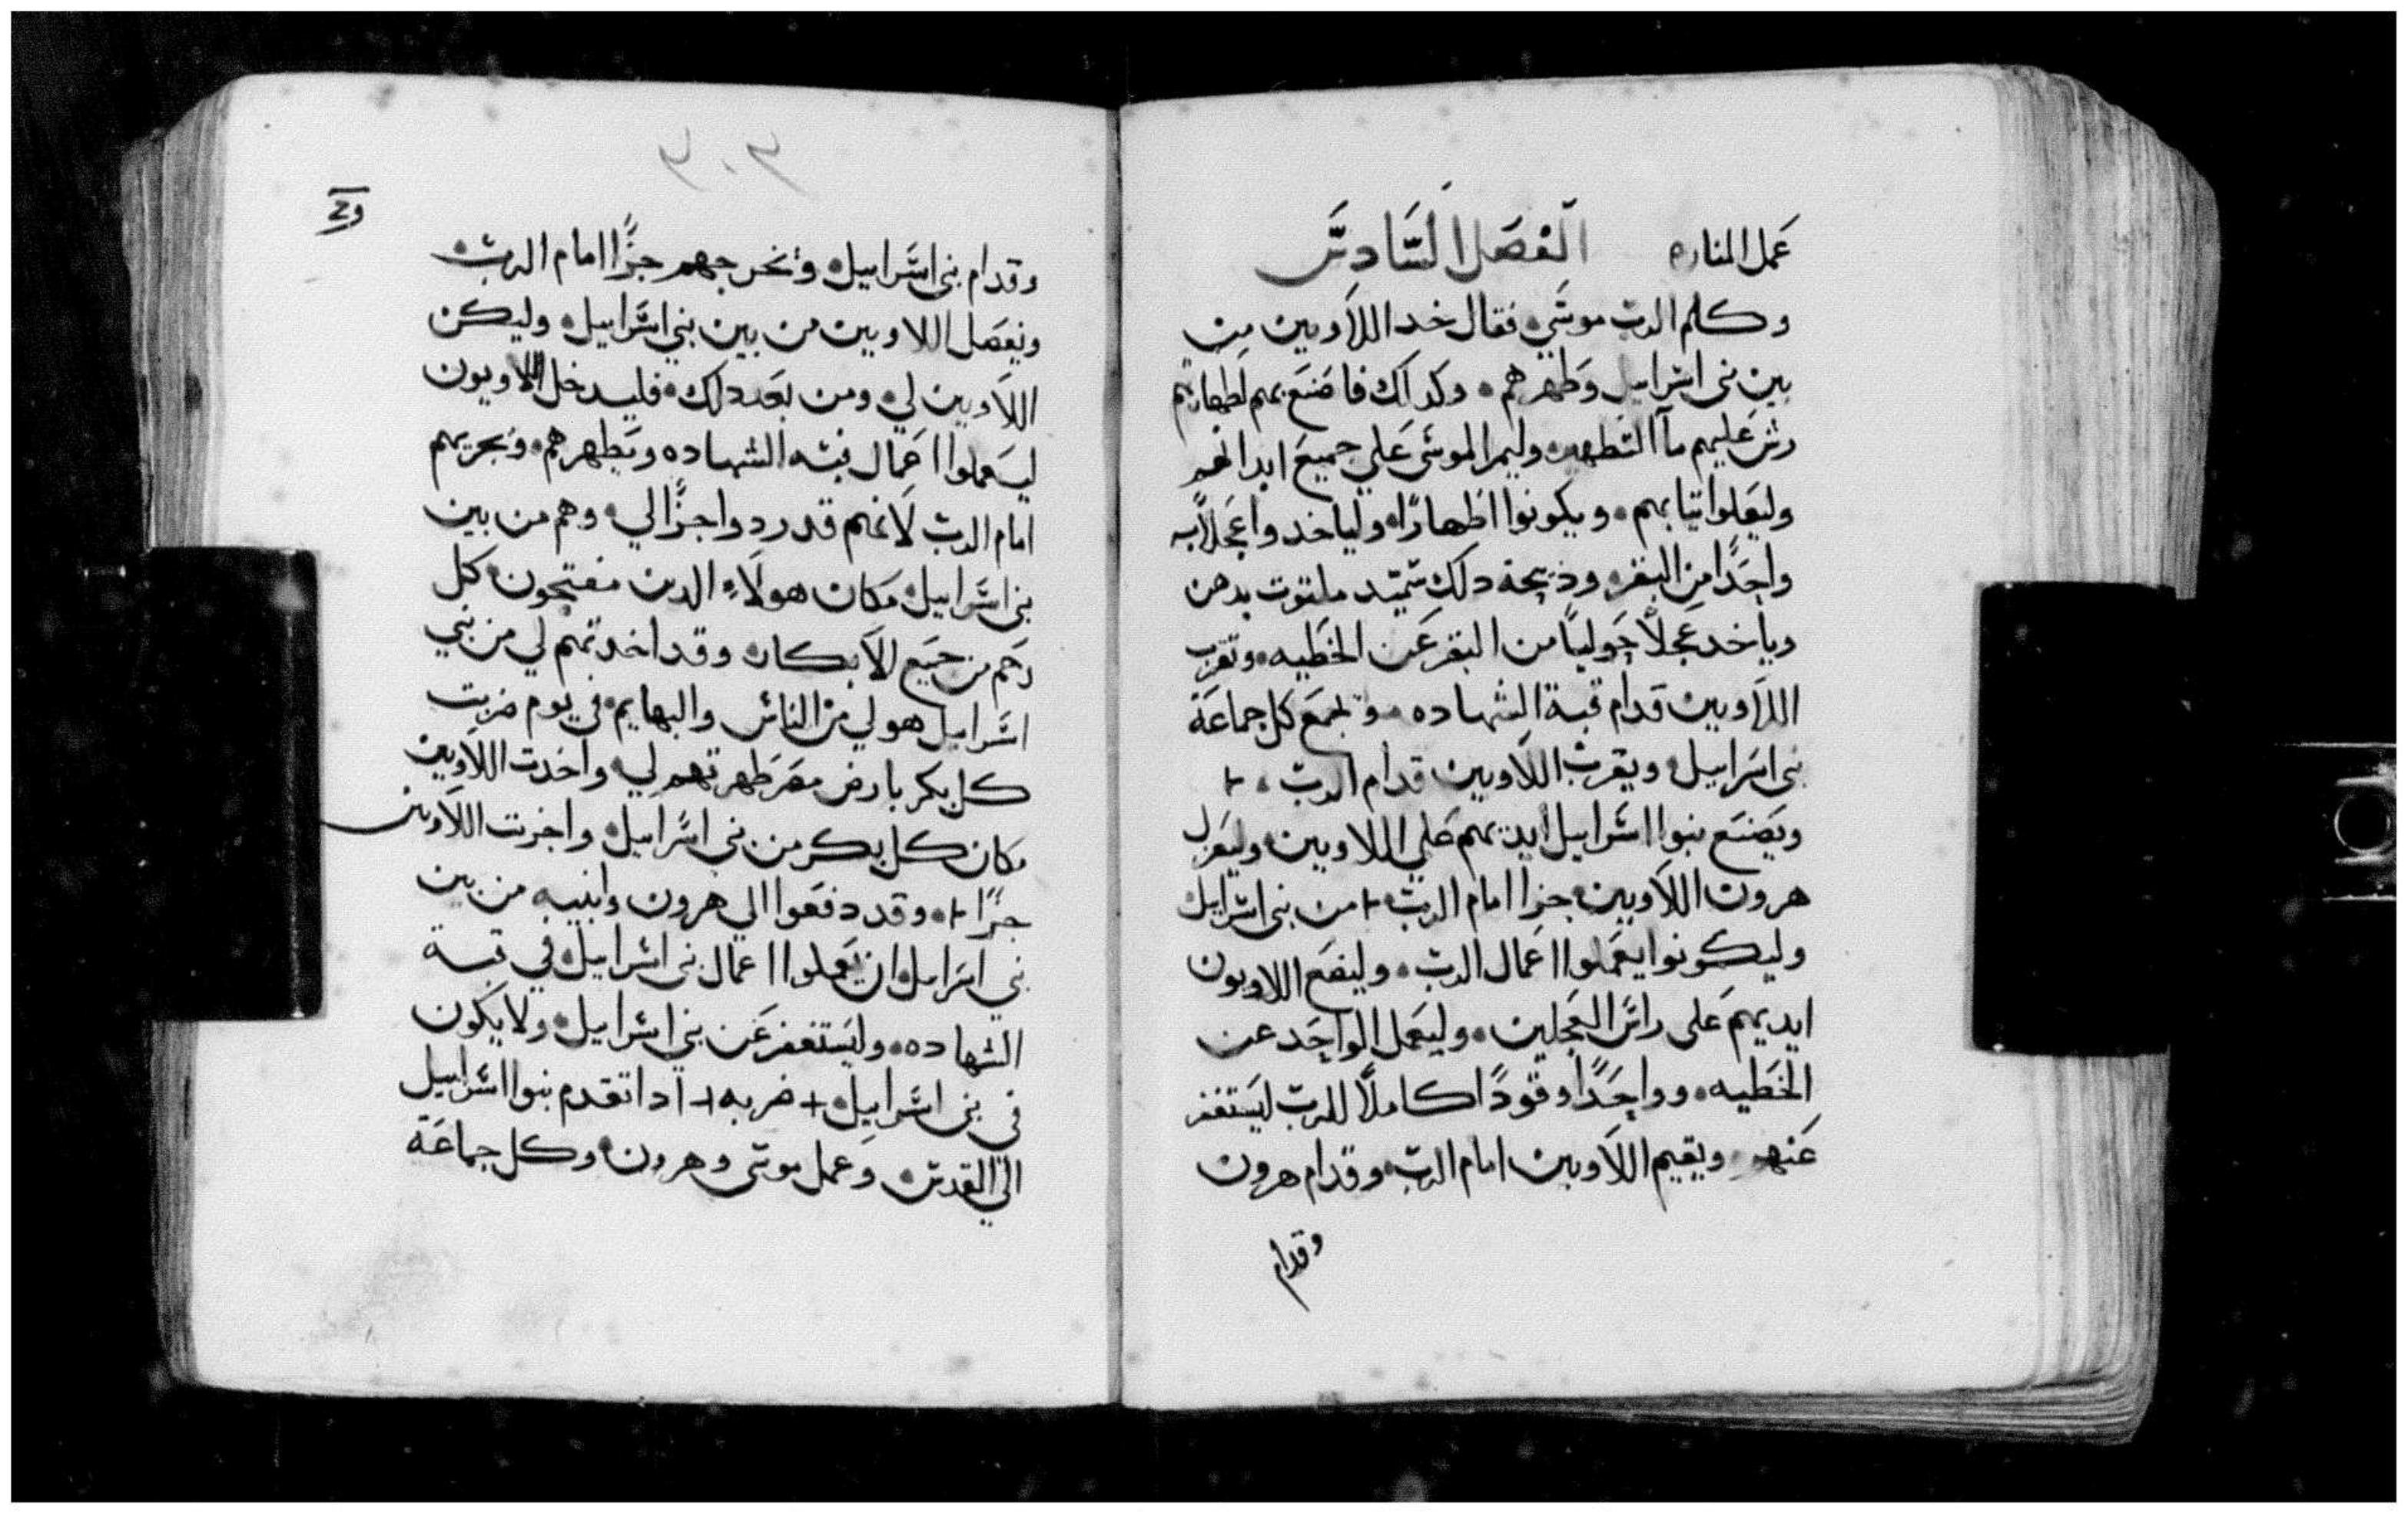 عمل المناره الفصل السادس
وكلم الرب موسي فقال خد اللاويين من
بين بني اسراييل وطهرهم وكدلك فاصنع بهم لطهارتهم
رش عليهم مآ التطهير وليمر الموسي علي جميع ابدانهم
وليغسلوا تيابهم ويكونوا اطهارًا ولياخدوا عجلاً
واحدًا من البقر ودبيحة دلك سميد ملتوت بدهن
وياخد عجلاً حوليًا من البقر عن الخطيه وتقرب
اللاويين قدام قبة الشهاده وتجمع كل جماعة
بني اسراييل ويقرب اللاويين قدام الرب
ويضع بنوا اسراييل ايديهم علي اللاويين وليعزل
هرون اللاويين جزا امام الرب من بني اسراييل
وليكونوا يعملوا اعمال الرب وليضع اللاويون
ايديهم علي راس العجلين وليعمل الواحد عن
الخطيه وواحدًا وقودًا كاملاً للرب ليستغفر
عنهم ويقيم اللاويين امام الرب وقدام هرون
وقدام
٣٠٣
وقدام بني اسراييل وتخرجهم جزًا امام الرب
ويفصل اللاويين من بين بني اسراييل وليكن
اللاويين لي ومن بعد دلك فليدخل اللاويون
ليعملوا اعمال قبة الشهاده وتطهرهم وتجزيهم
امام الرب لانهم قد ردوا جزًا لي وهم من بين
بني اسراييل مكان هولاء الدين يفتحون كل
رحم من جميع الابكار وقد اخدتهم لي من بني
اسراييل هو لي من الناس والبهايم في يوم ضربت
كل بكر بارض مصر طهرتهم لي واخدت اللاويين
مكان كل بكر من بني اسراييل واجزيت اللاويين
جزًا وقد دفعوا الي هرون وابنيه من بين
بني اسراييل ان يعملوا اعمال بني اسراييل في قبة
الشهاده وليستغفر عن بني اسراييل ولا يكون
في بني اسراييل + ضربه + ادا تقدم بنوا اسراييل
الي القدس وعمل موسي وهرون وكل جماعة